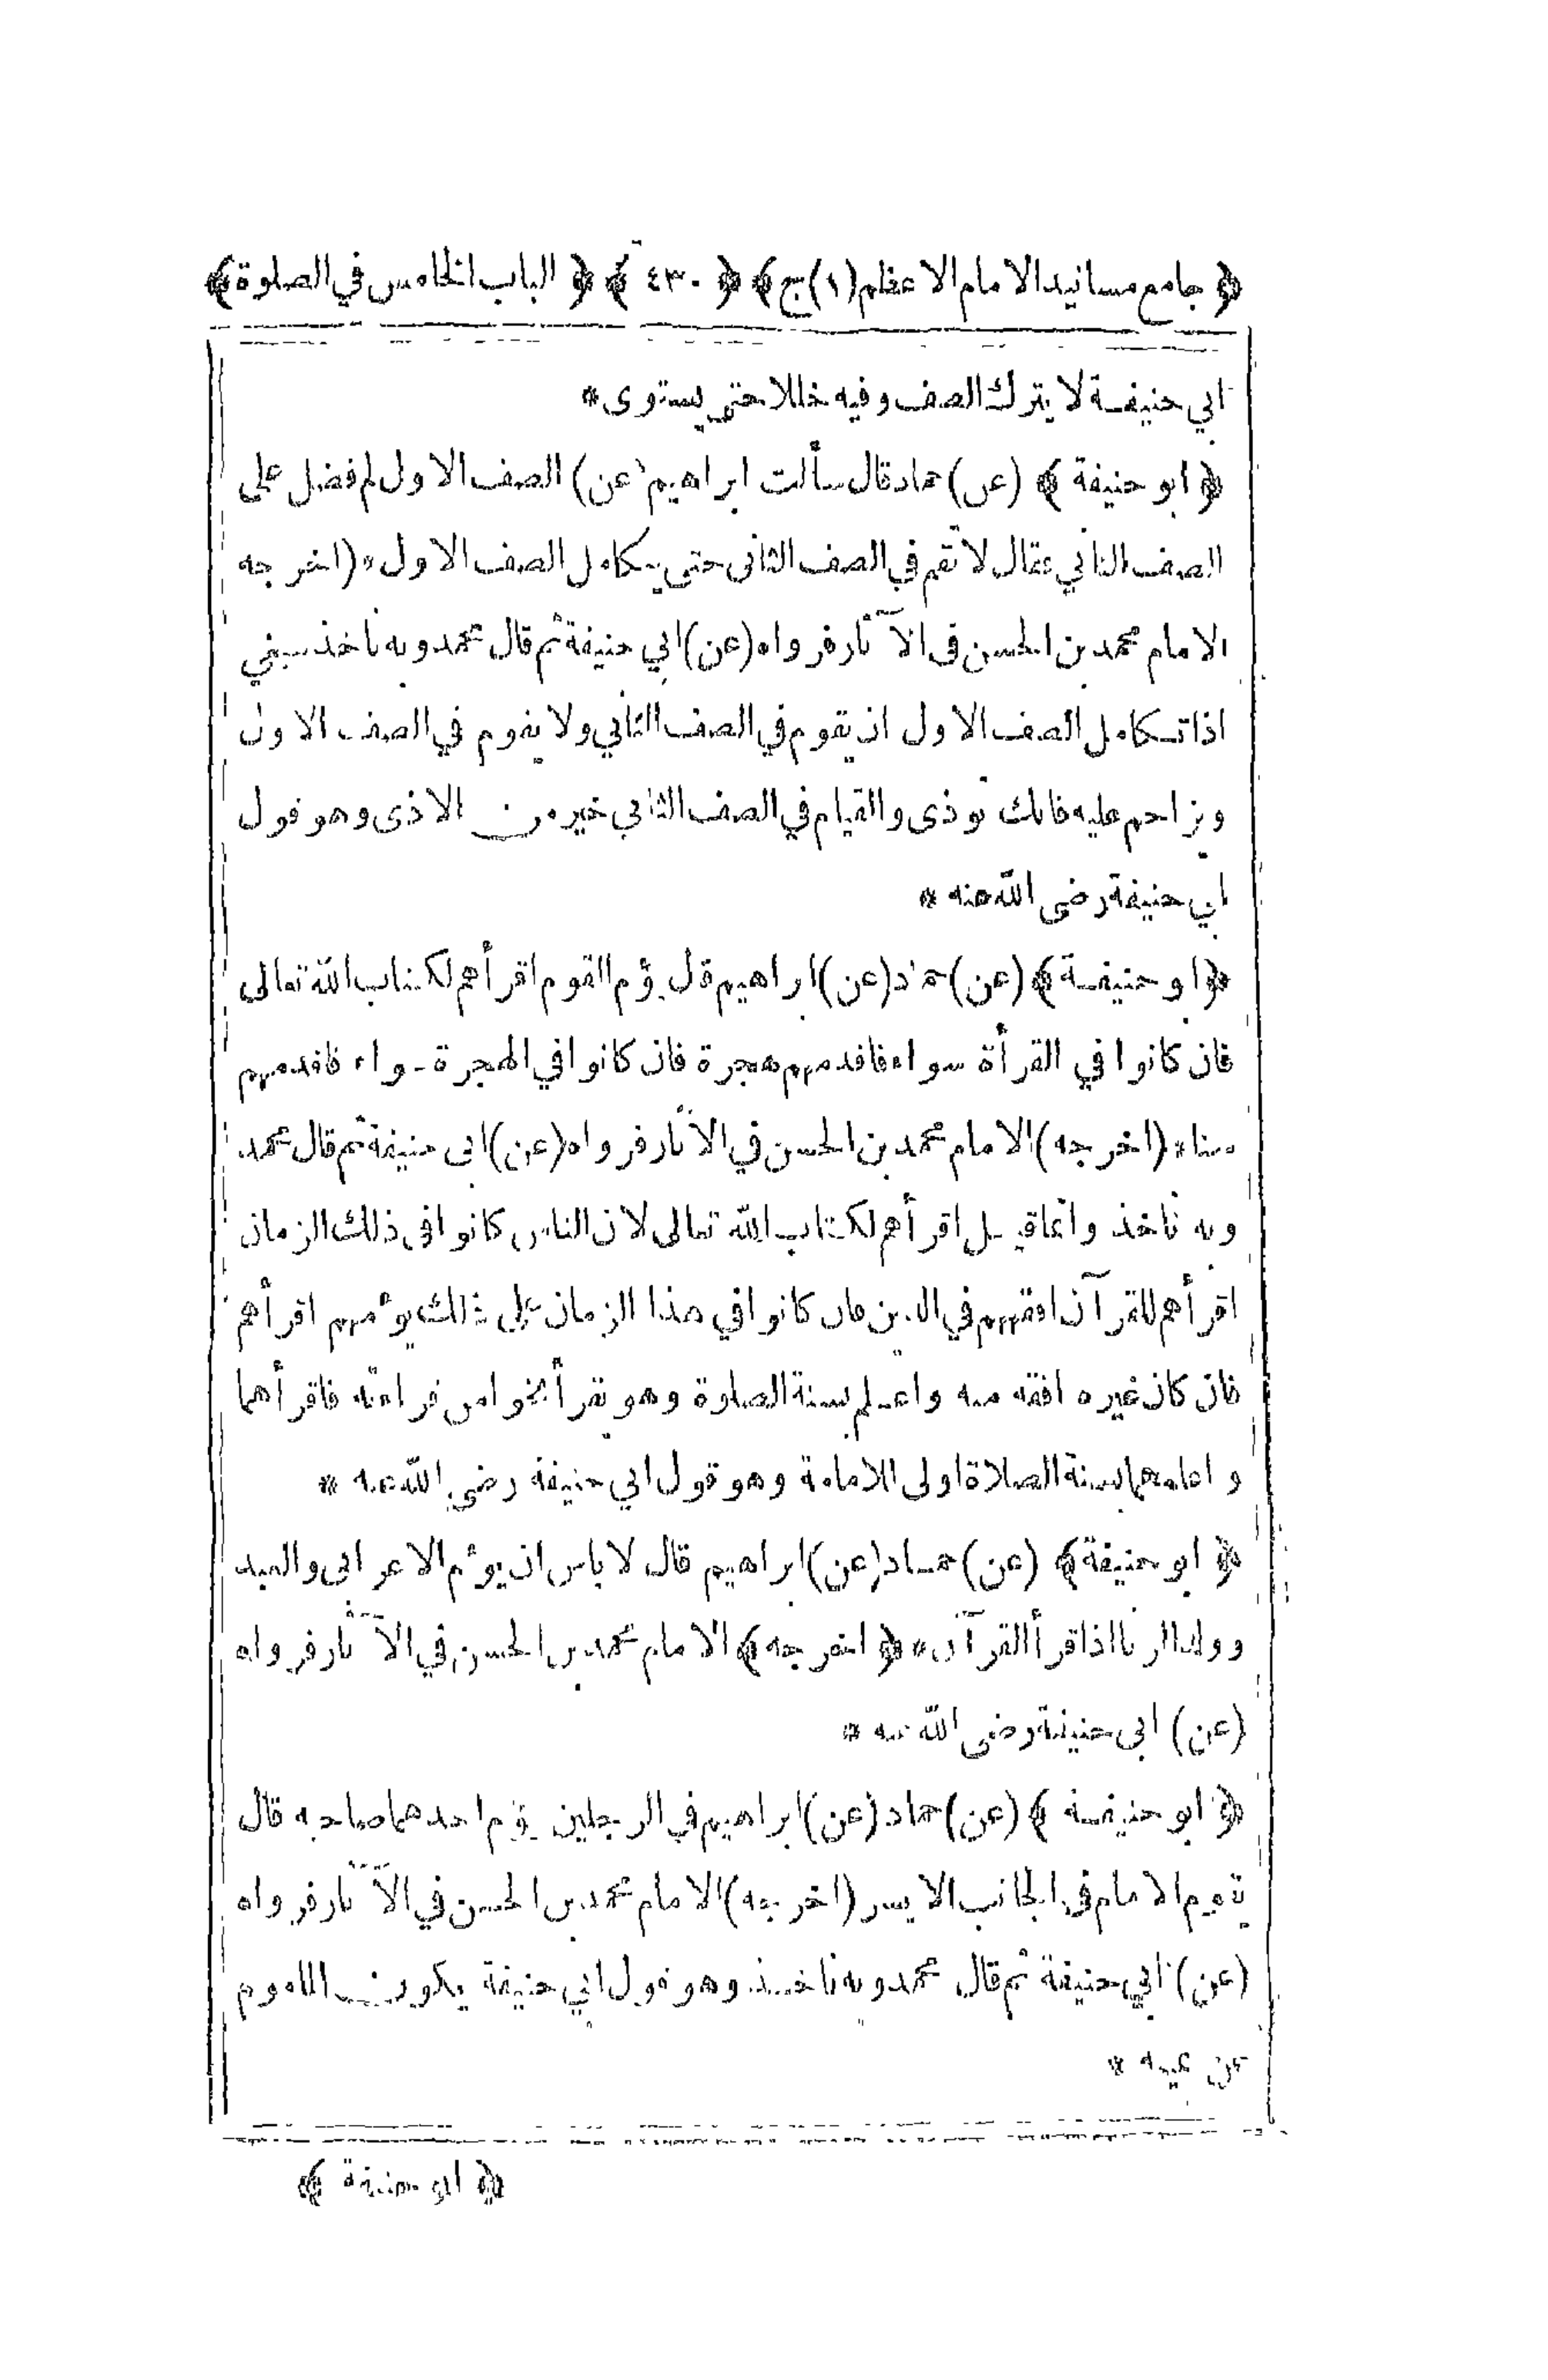 ﴿ جامع مسانيد الامام الاعظم (١) ج ﴾ ﴿ ٤٣٠ ﴾ ﴿ الباب الخامس في الصلوة ﴾
ابي حنيفة لا يترك الصف وفيه خللا حتى يستوى *
﴿ ابو حنيفة ﴾ (عن) حماد قال سألت ابراهيم (عن) الصف الاول لم فضل على
الصف الثاني فقال لا تقم في الصف الثانى حتى يتكامل الصف الاول * (اخرجه
الامام محمد بن الحسن فى الآثار فرواه (عن) ابي حنيفة ثم قال محمد وبه ناخذ ينبغي
اذا تكامل الصف الاول ان يقوم في الصف الثاني ولا يقوم في الصف الاول
ويزاحم عليه فانك توذى والقيام في الصف الثاني خير من الاذى وهو قول
ابي حنيفة رضى الله عنه *
﴿ ابو حنيفة ﴾ (عن) حماد (عن) ابراهيم قال يؤم القوم اقرأهم لكتاب الله تعالى
فان كانوا في القرأة سواء فاقدمهم هجرة فان كانوا في الهجرة سواء فاقدمهم
سنا * (اخرجه) الامام محمد بن الحسن في الآثار فرواه (عن) ابى حنيفة ثم قال محمد
وبه ناخذ وانما قيل اقرأهم لكتاب الله تعالى لان الناس كانوا فى ذلك الزمان
اقرأهم للقرآن افقههم في الدين فان كانوا في هذا الزمان على ذلك يؤمهم اقرأهم
فان كان غيره افقه منه واعلم بسنة الصلوة وهو يقرأ نحوا من قراءته فاقرأهما
واعلمهما بسنة الصلاة اولى للامامة وهو قول ابي حنيفة رضي الله عنه *
﴿ ابو حنيفة ﴾ (عن) حماد (عن) ابراهيم قال لا باس ان يؤم الاعرابى والعبد
وولد الزنا اذا قرأ القرآن * ﴿ اخرجه ﴾ الامام محمد بن الحسن في الآثار فرواه
(عن) ابى حنيفة رضى الله عنه *
﴿ ابو حنيفة ﴾ (عن) حماد (عن) ابراهيم في الرجلين يؤم احدهما صاحبه قال
يقوم الامام في الجانب الايسر (اخرجه) الامام محمد بن الحسن في الآثار فرواه
(عن) ابي حنيفة ثم قال محمد وبه ناخذ وهو قول ابي حنيفة يكون الماموم
عن يمينه *
﴿ ابو حنيفة ﴾